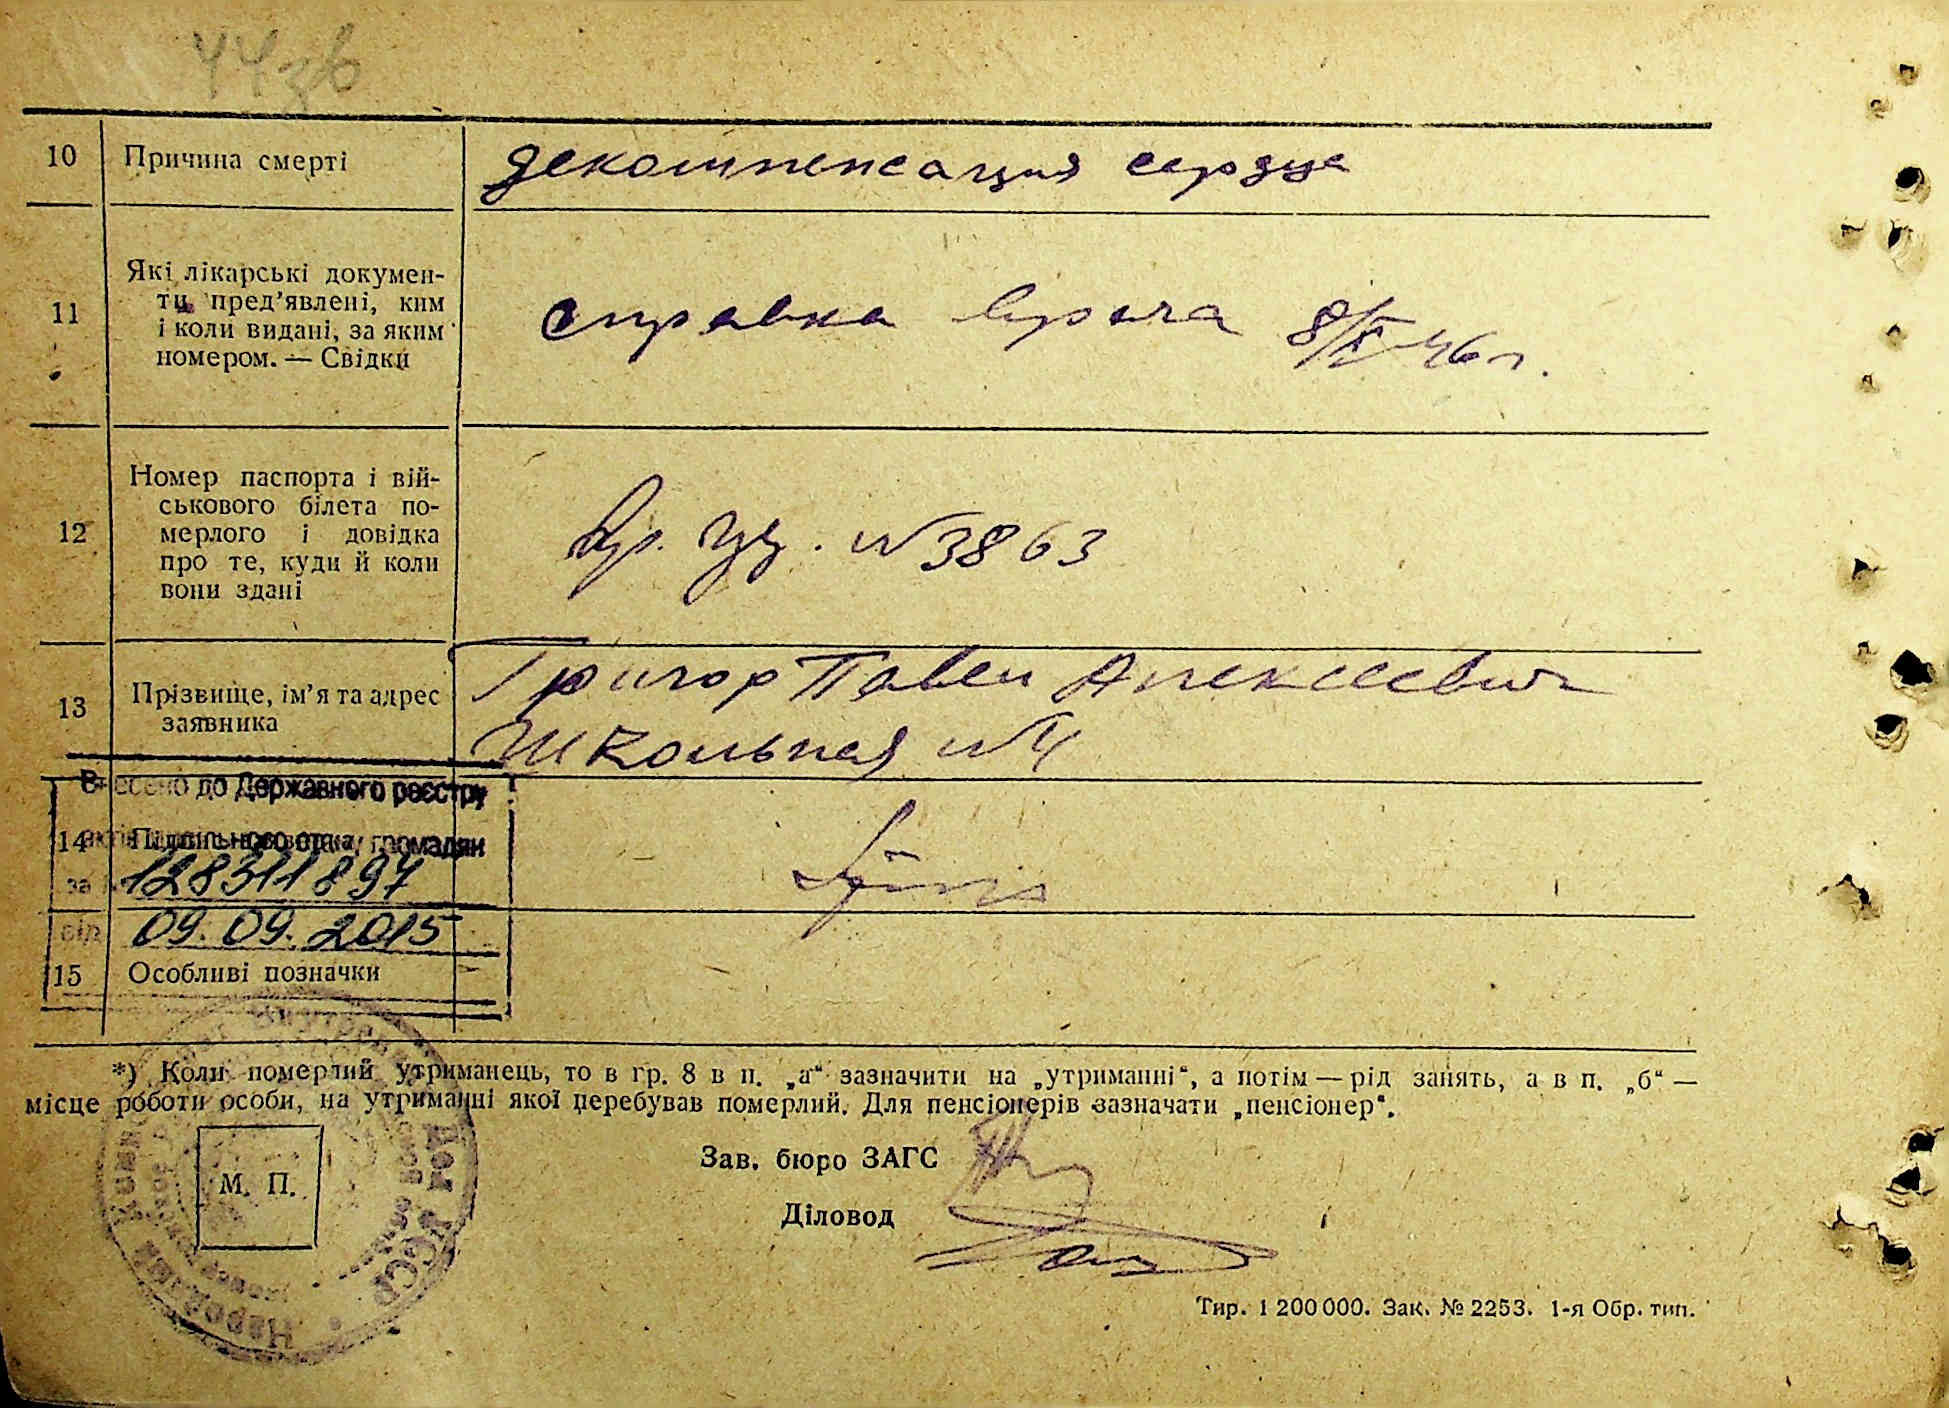 10 Причина смерті декомпенсация сердца
11 Які лікарські докумен-
ти пред'явлені, ким
і коли видані, за яким
номером. — Свідки
справка врача 8/X-46 г.
12 Номер паспорта і вій-
ськового білета по-
мерлого і довідка
про те, куди й коли
вони здані
Вр. уд. №3863
13 Прізвище, ім'я та адрес
заявника
Григор Павел Алексеевич
Школьная №4
Внесено до Державного реєстру
14 Підпис заявника
актів цивільного стану громадян
за № 128311897
від 09.09.2015
15 Особливі позначки
*) Коли померлий утриманець, то в гр. 8 в п. „а“ зазначити на „утриманні“, а потім — рід занять, а в п. „б“ —
місце роботи особи, на утриманні якої перебував померлий. Для пенсіонерів зазначати „пенсіонер“.
М. П.
Зав. бюро ЗАГС
Діловод
Тир. 1 200 000. Зак. № 2253. 1-я Обр. тип.